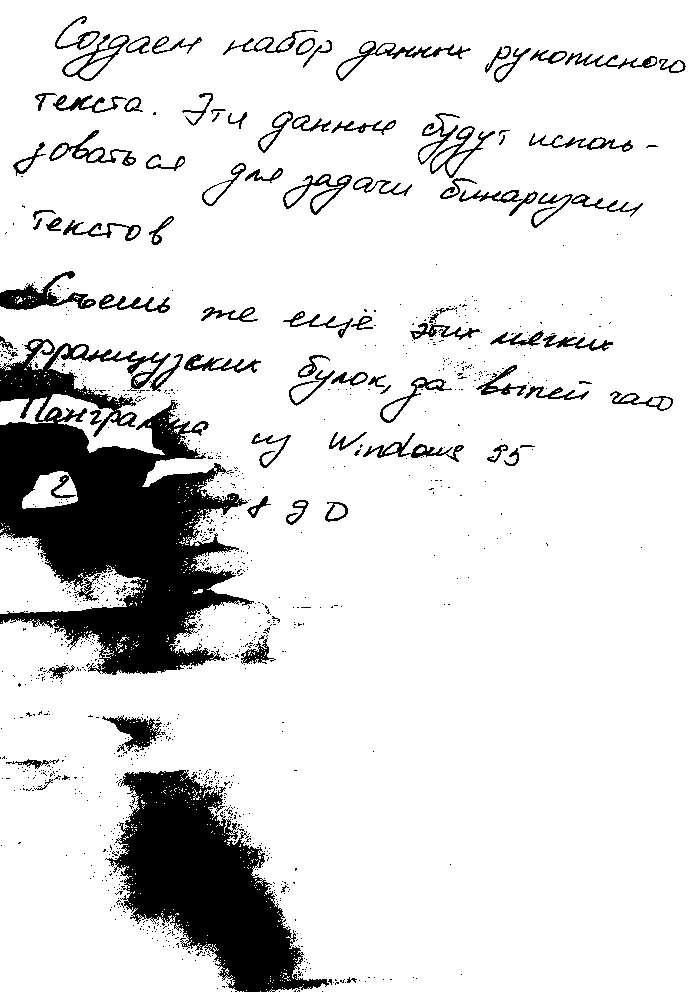 Создаем набор данных рукописного
текста. Эти данные будут исполь-
зоваться для задачи бинаризации
текстов
Съешь же ещё этих мягких
французских булок, да выпей чаю
Панграмма из Windows 95
2 8 9 0